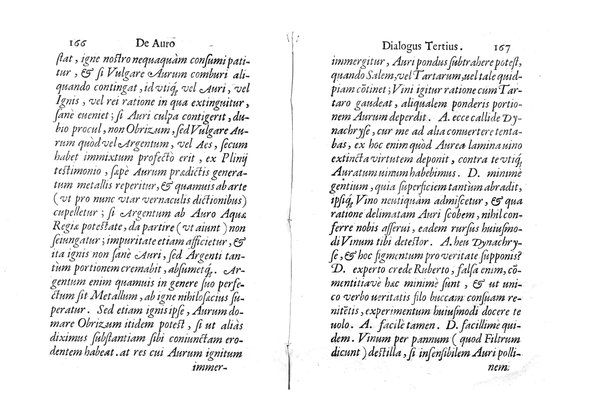 166 De Auro
stat, igne nostro nequaquàm consumi pati-
tur, & si Vulgare Aurum comburi ali-
quando contingat, id vtiq́, vel Auri, vel
Ignis, vel rei ratione in qua extinguitur,
sanè eueniet; si Auri culpa contigerit, du-
bio procul, non Obrizum, sed Vulgare Au-
rum quòd vel Argentum, vel Aes, secum
habet immixtum profectò erit, ex Plinij
testimonio, sapè Aurum prædictis genera-
tum metallis reperitur, & quamuis ab arte
(vt pro nunc vtar vernaculis dictionibus)
cupelletur; si Argentum ab Auro Aquæ
Regiæ potestate, da partire (vt aiunt) non
seiungatur; impuritate etiam afficietur, &
ita ignis non sanè Auri, sed Argenti tan-
tùm portionem cremabit, absumetq́. Ar-
gentum enim quamuis in genere suo perfe-
ctum sit Metallum, ab igne nihilosæcius su-
peratur. Sed etiam ignis ipse, Aurum do-
mare Obrizum itidem potest, si ut aliàs
diximus substantiam sibi coniunctam ero-
dentem habeat. at res cui Aurum ignitum
immer-
Dialogus Tertius. 167
immergitur, Auri pondus subtrahere potest,
quando Salem, vel Tartarum, uel tale quid-
piam continet; Vini igitur ratione cum Tar-
taro gaudeat, aliqualem ponderis portio-
nem Aurum deperdit. A. ecce allide Dy-
nachryse, cur me ad alia conuertere tenta-
bas, ex hoc enim quòd Aurea lamina uino
extincta virtutem deponit, contra te vtiq́,
Auratum uinum habebimus. D. minimè
gentium, quia superficiem tantùm abradit,
ipsiq́, Vino neutiquam admiscetur, & qua
ratione delimatam Auri scobem, nihil con-
ferre nobis asserui, eadem rursus huiusmo-
di Vinum tibi detestor. A. heu Dynachry-
se, & hoc figmentum pro veritate supponis?
D. experto crede Ruberto, falsa enim, cō-
mentitiàvè hæc minimè sunt, & ut uni-
co verbo ueritatis filo buccam consuam re-
nitētis, experimentum huiusmodi docere te
uolo. A. facile tamen. D. facillimè qui-
dem. Vinum per pannum (quod Filtrum
dicunt) destilla, si insensibilem Auri polli-
nem